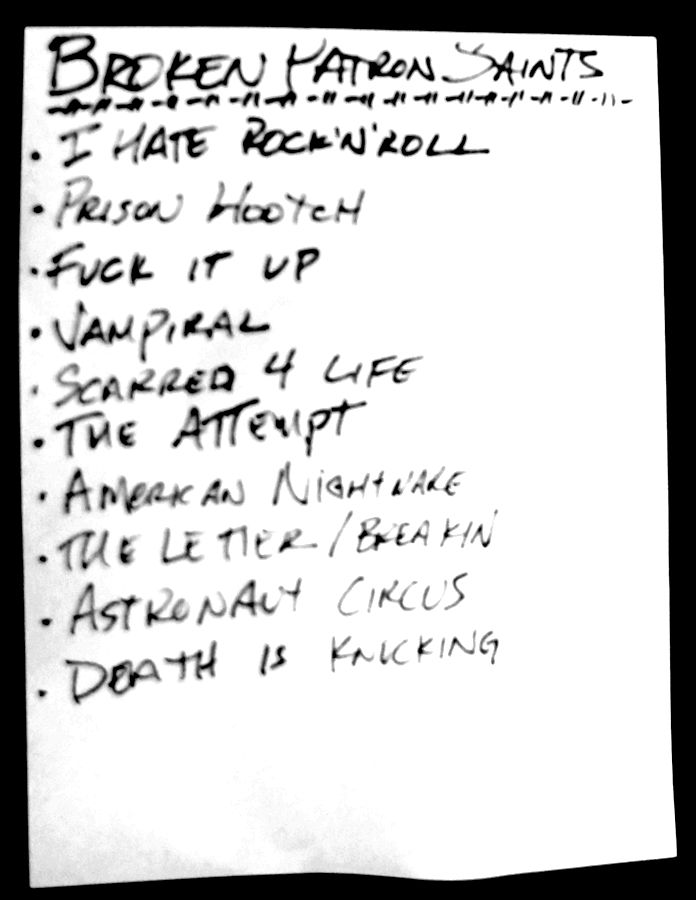 BROKEN PATRON SAINTS
• I HATE ROCK'N'ROLL
• PRISON HOOTCH
• FUCK IT UP
• VAMPIRAL
• SCARRED 4 LIFE
• THE ATTEMPT
• AMERICAN NIGHTMARE
• THE LETTER/BREAKIN
• ASTRONAUT CIRCUS
• DEATH IS KNOCKING